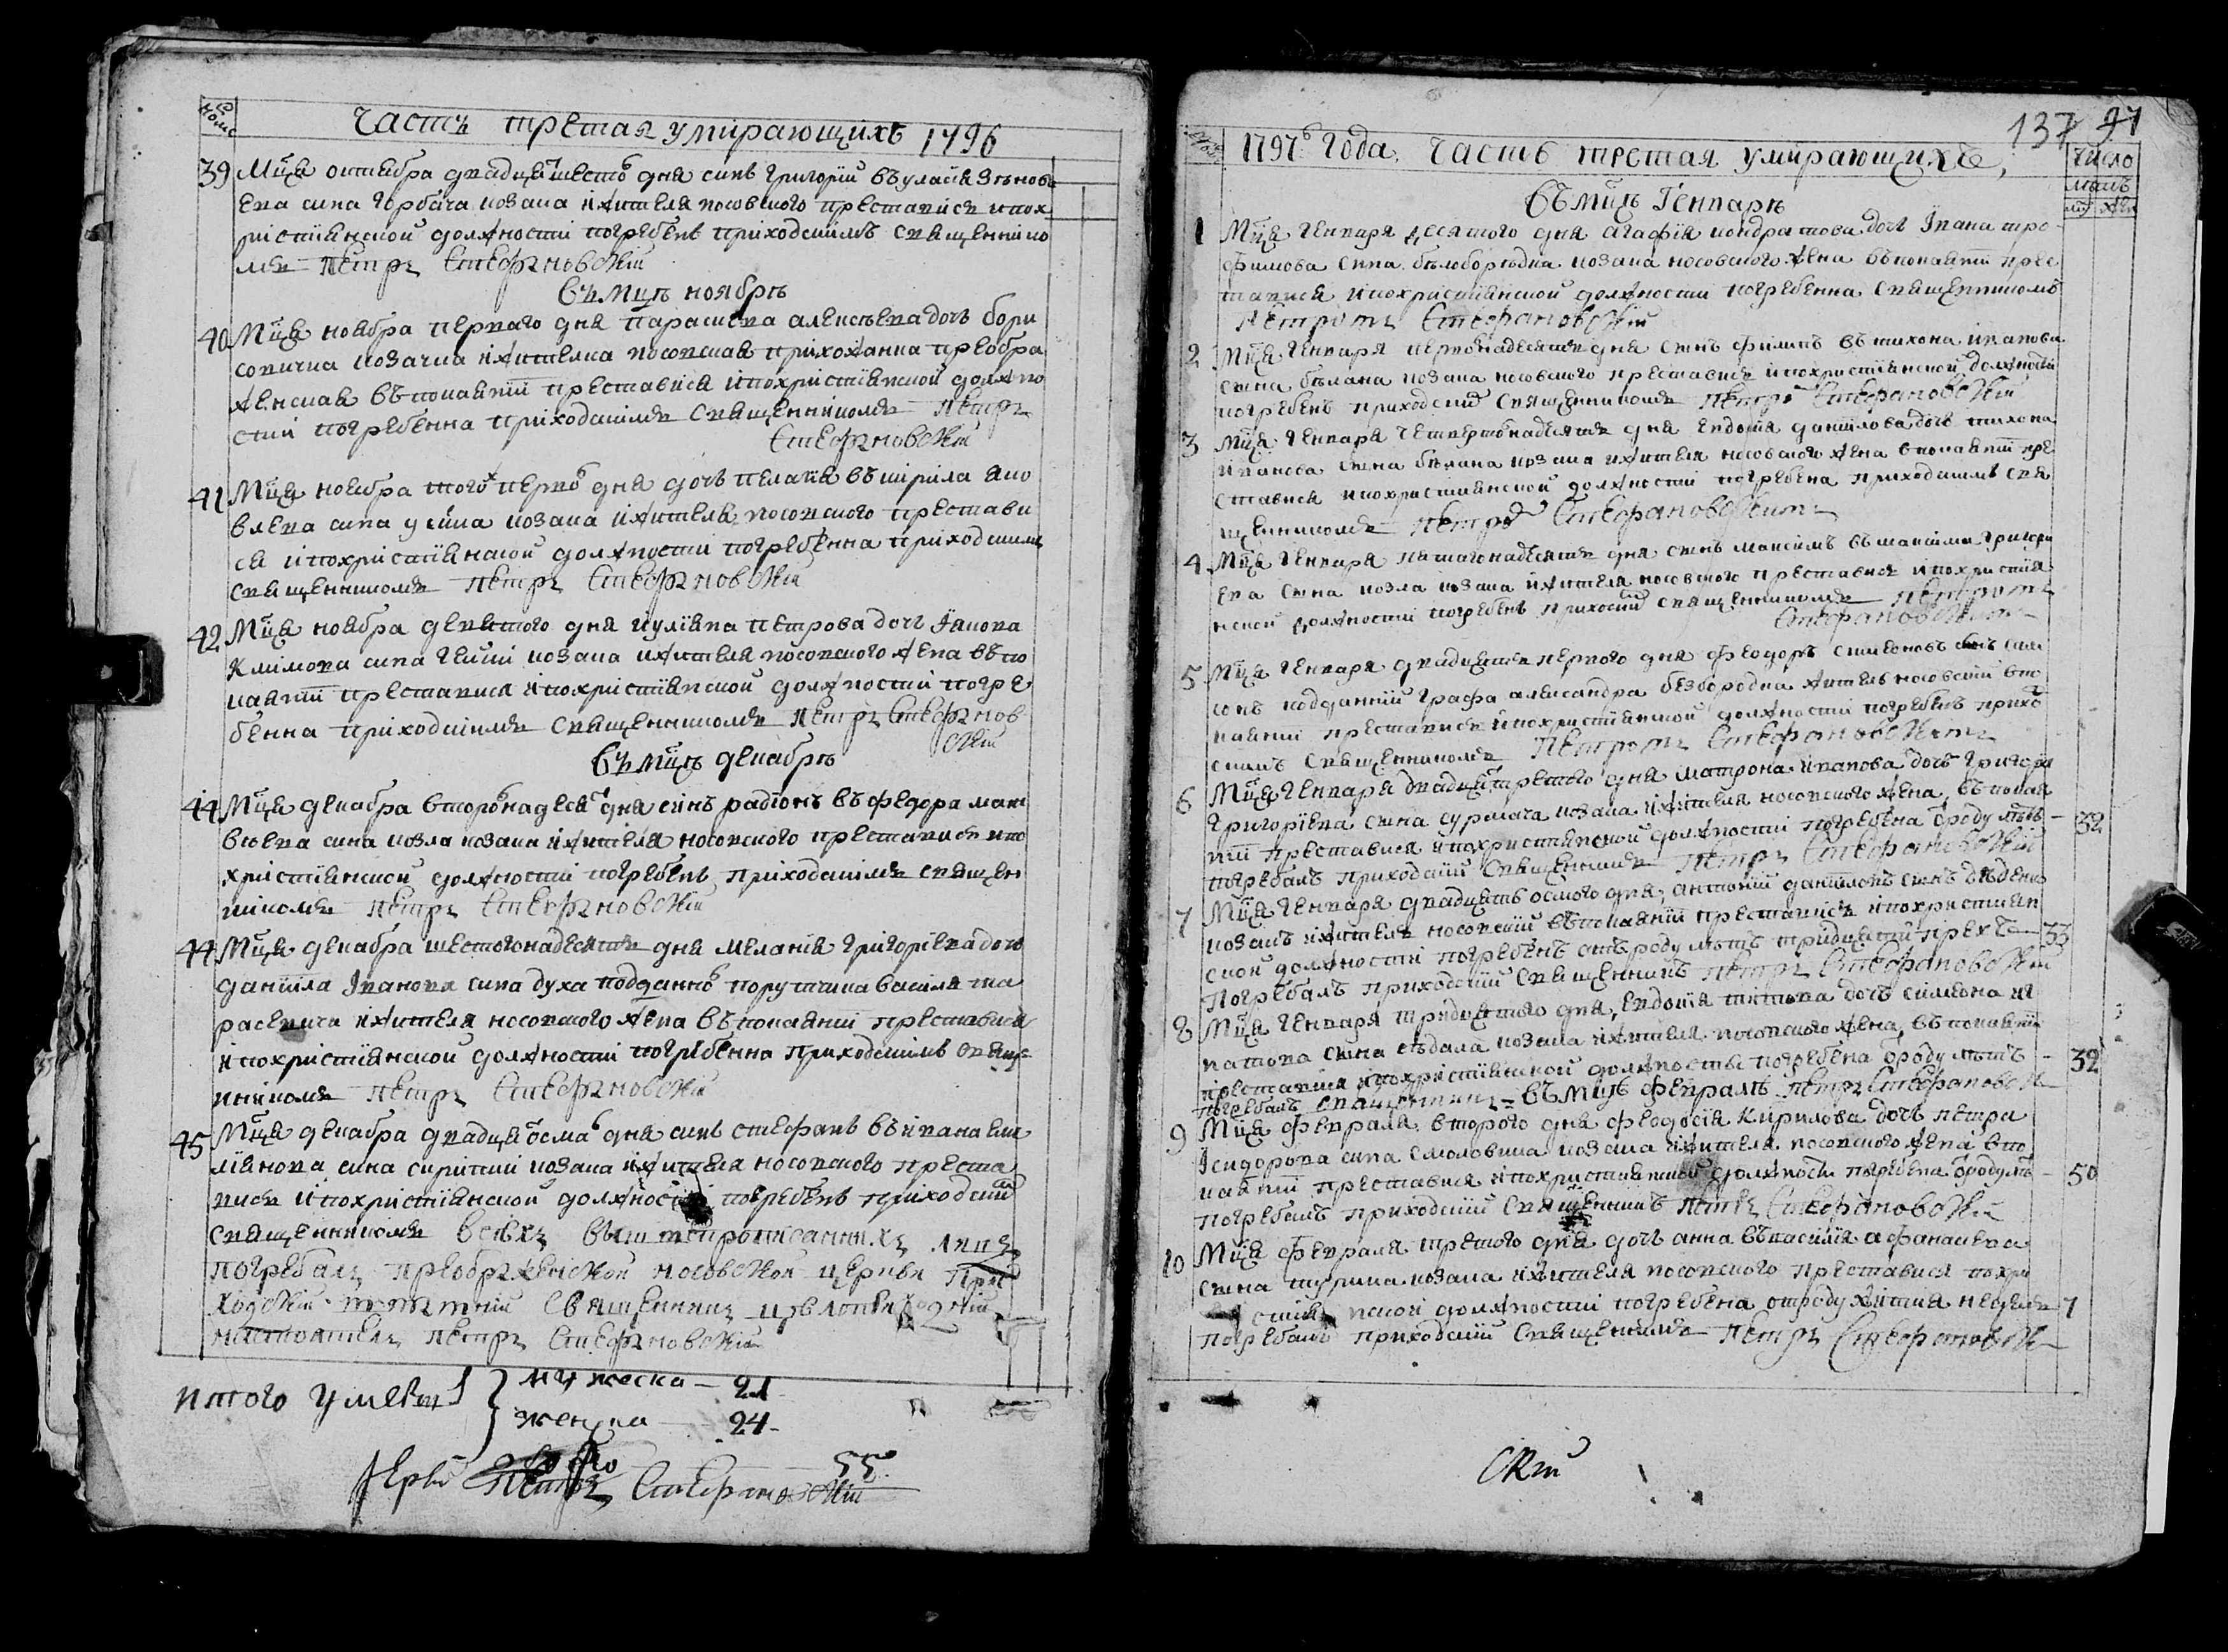 Часть третая умирающихъ 1796
39 Мца октябра двадцать шесто дня синъ григорий въ уласа зѣнов
ева сина горбача козака и жителя носовского преставися и пох
ристиянской должности погребенъ приходскимъ священнико
мъ Петръ Стефановский
Въ мцѣ ноябрѣ
40 Мца ноября первого дня параскева алексѣева дочь бори
совичка козачка и жителка носовская прихожанка преобра
женская въ покаянии преставися и похристиянской должно
сти погребенна приходскимъ священникомъ Петръ
Стефановский
41 Мца ноября того первого дня дочь пелагия въ кирила яко
влева сина козака и жителя носовского престави
ся и похристиянской должности погребенна приходскимъ
священникомъ Петръ Стефановский
42 Мца ноября девятого дня иулияна петрова дочь Якова
климова сина козака и жителя носовского жена въ по
каянии преставися и похристиянской должности погре
бенна приходскимъ священникомъ Петръ Стефанов
ский
Въ мцѣ декабрѣ
44 Мца декабра второнадесять дня синъ радионъ въ федора мат
вѣева сина козла козака и жителя носовского преставися и по
християнской должности погребенъ приходскимъ священ
никомъ Петръ Стефановский
44 Мца декабра шестогонадесять дня мелания григориева дочь
даниила Иванова сина духа подданно порутчика василя та
расевича и жителя носовского жена въ покаянии преставися
и похристиянской должности погребенна приходскимъ свяще
нникомъ Петръ Стефановский
45 Мца декабра двадцать осма дня синъ стефанъ въ ивана еми
лиянова сина скрипки козака и жителя носовского преста
вися и похристиянской должности погребенъ приходским
священникомъ всѣхъ вишепрописаннихъ лицъ
погребалъ преображенской носовской церкви при
ходский священникъ
настоятель Петръ Стефановский
итого умерш
мужеска — 21
женска — 24
55
Иерей Петръ Стефановский
137 97
1797 года, Часть третая умирающихъ,
число
лѣтъ
му же
Въ мцѣ Генварѣ
1 Мца генваря десятого дня агафия кондратова дочь Ивана тро
фимова сина бѣлобородка козака носовского жена въ покаянии прес
тавися и похристиянской должности погребенна священникомъ
Петромъ Стефановский
2 Мца генваря первонадесять дня синъ филипъ въ тихона иванова
сина бѣлана козака носовского преставися и похристиянской должности
погребенъ приходский священникомъ Петро Стефановский
3 Мца генваря четвертонадесять дня евдокия данилова дочь тихона
иванова сина бѣлана козака и жителя носовского жена в покаянии пре
ставися и похристиянской должности погребена приходскимъ свя
щенникомъ Петро Стефановскимъ
4 Мца генваря пятагонадесять дня синъ максимъ въ максима григори
ева сина козла козака и жителя носовского преставися и похристия
нской должности погребенъ приходский священникомъ Петромъ
Стефановскимъ
5 Мца генваря двадцять первого дня феодоръ симеоновъ синъ
подданний графа александра безбородка житель носовский в по
каянии преставися и похристиянской должности погребенъ прихо
скимъ священникомъ Петромъ Стефановскимъ
6 Мца генваря двадцять третого дня матрона иванова дочь григория
григориева сина сурмача козака и жителя носовского жена, въ покая
нии преставися и похристиянской должности погребена ороду лѣтъ — 32
погребалъ приходский священникъ Петръ Стефановский
7 Мца генваря двадцять осмого дня, антоний даниловъ синъ дѣденко
козакъ и житель носовский въ покаянии преставися и похристиян
ской должности погребенъ отъ роду лѣтъ тридцяти трехъ — 33
погребалъ приходский священникъ Петръ Стефановский
8 Мца генваря тридцятого дня, евдокия титова дочь симеона иг
натова сина сѣдала козака и жителя носовского жена, въ покаянии
преставися и похристиянской должности погребена ороду лѣтъ — 32
погребалъ священникъ = Въ мцѣ февралѣ Петръ Стефановск
9 Мца февраля второго дня феодосия кирилова дочь петра
Исидорова сина смоловика козака и жителя носовского жена в по
каянии преставися и похристиянской должности погребена ороду лѣ — 50
погребалъ приходский священникъ Петръ Стефановский
10 Мца февраля третого дня дочь анна въ василия афанасиева
сина турика козака и жителя носовского преставися похри
стиянской должности погребена отроду жития недель 7
погребалъ приходский священникъ Петръ Стефановск
ский